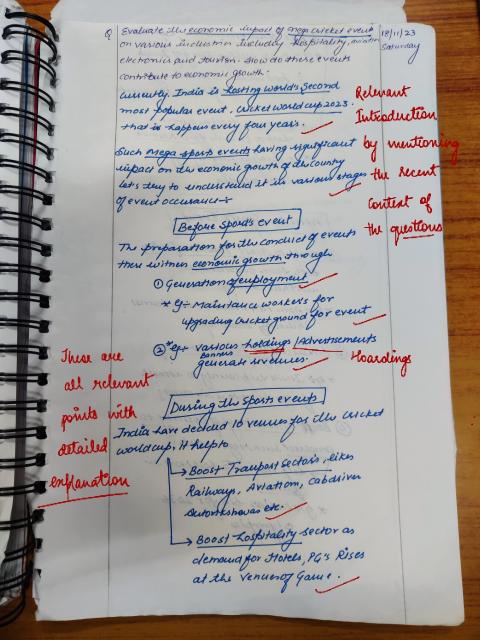 Q Evaluate the economic impact of mega cricket events
on various industries including Hospitality, aviation
electronics and tourism. How do these events
contribute to economic growth.
18/11/23
Saturday
Currently India is hosting world's second
most popular event, Cricket world cup 2023.
that is happens every four years.
Such mega sports events having significant
impact on the economic growth of the country
let's try to understand it in various stages
of event occurance:-
Relevant
Introduction
by mentioning
the recent
context of
the questions
Before Sports event
The preparation for the conduct of events
there witness economic growth through
① Generation of employment
* Eg:- Maintance workers for
upgrading cricket ground for event
② * Eg:- various holdings / Advertisements
Banners
generate revenues.
Hoardings
These are
all relevant
points with
detailed
explanation
During the Sports event
India have decided 10 venues for the cricket
world cup, it help to
→ Boost Transport sectors, likes
Railways, Aviation, cab driver
autorikshawas etc.
→ Boost hospitality sector as
demand for Hotels, PG's Rises
at the venues of Game.